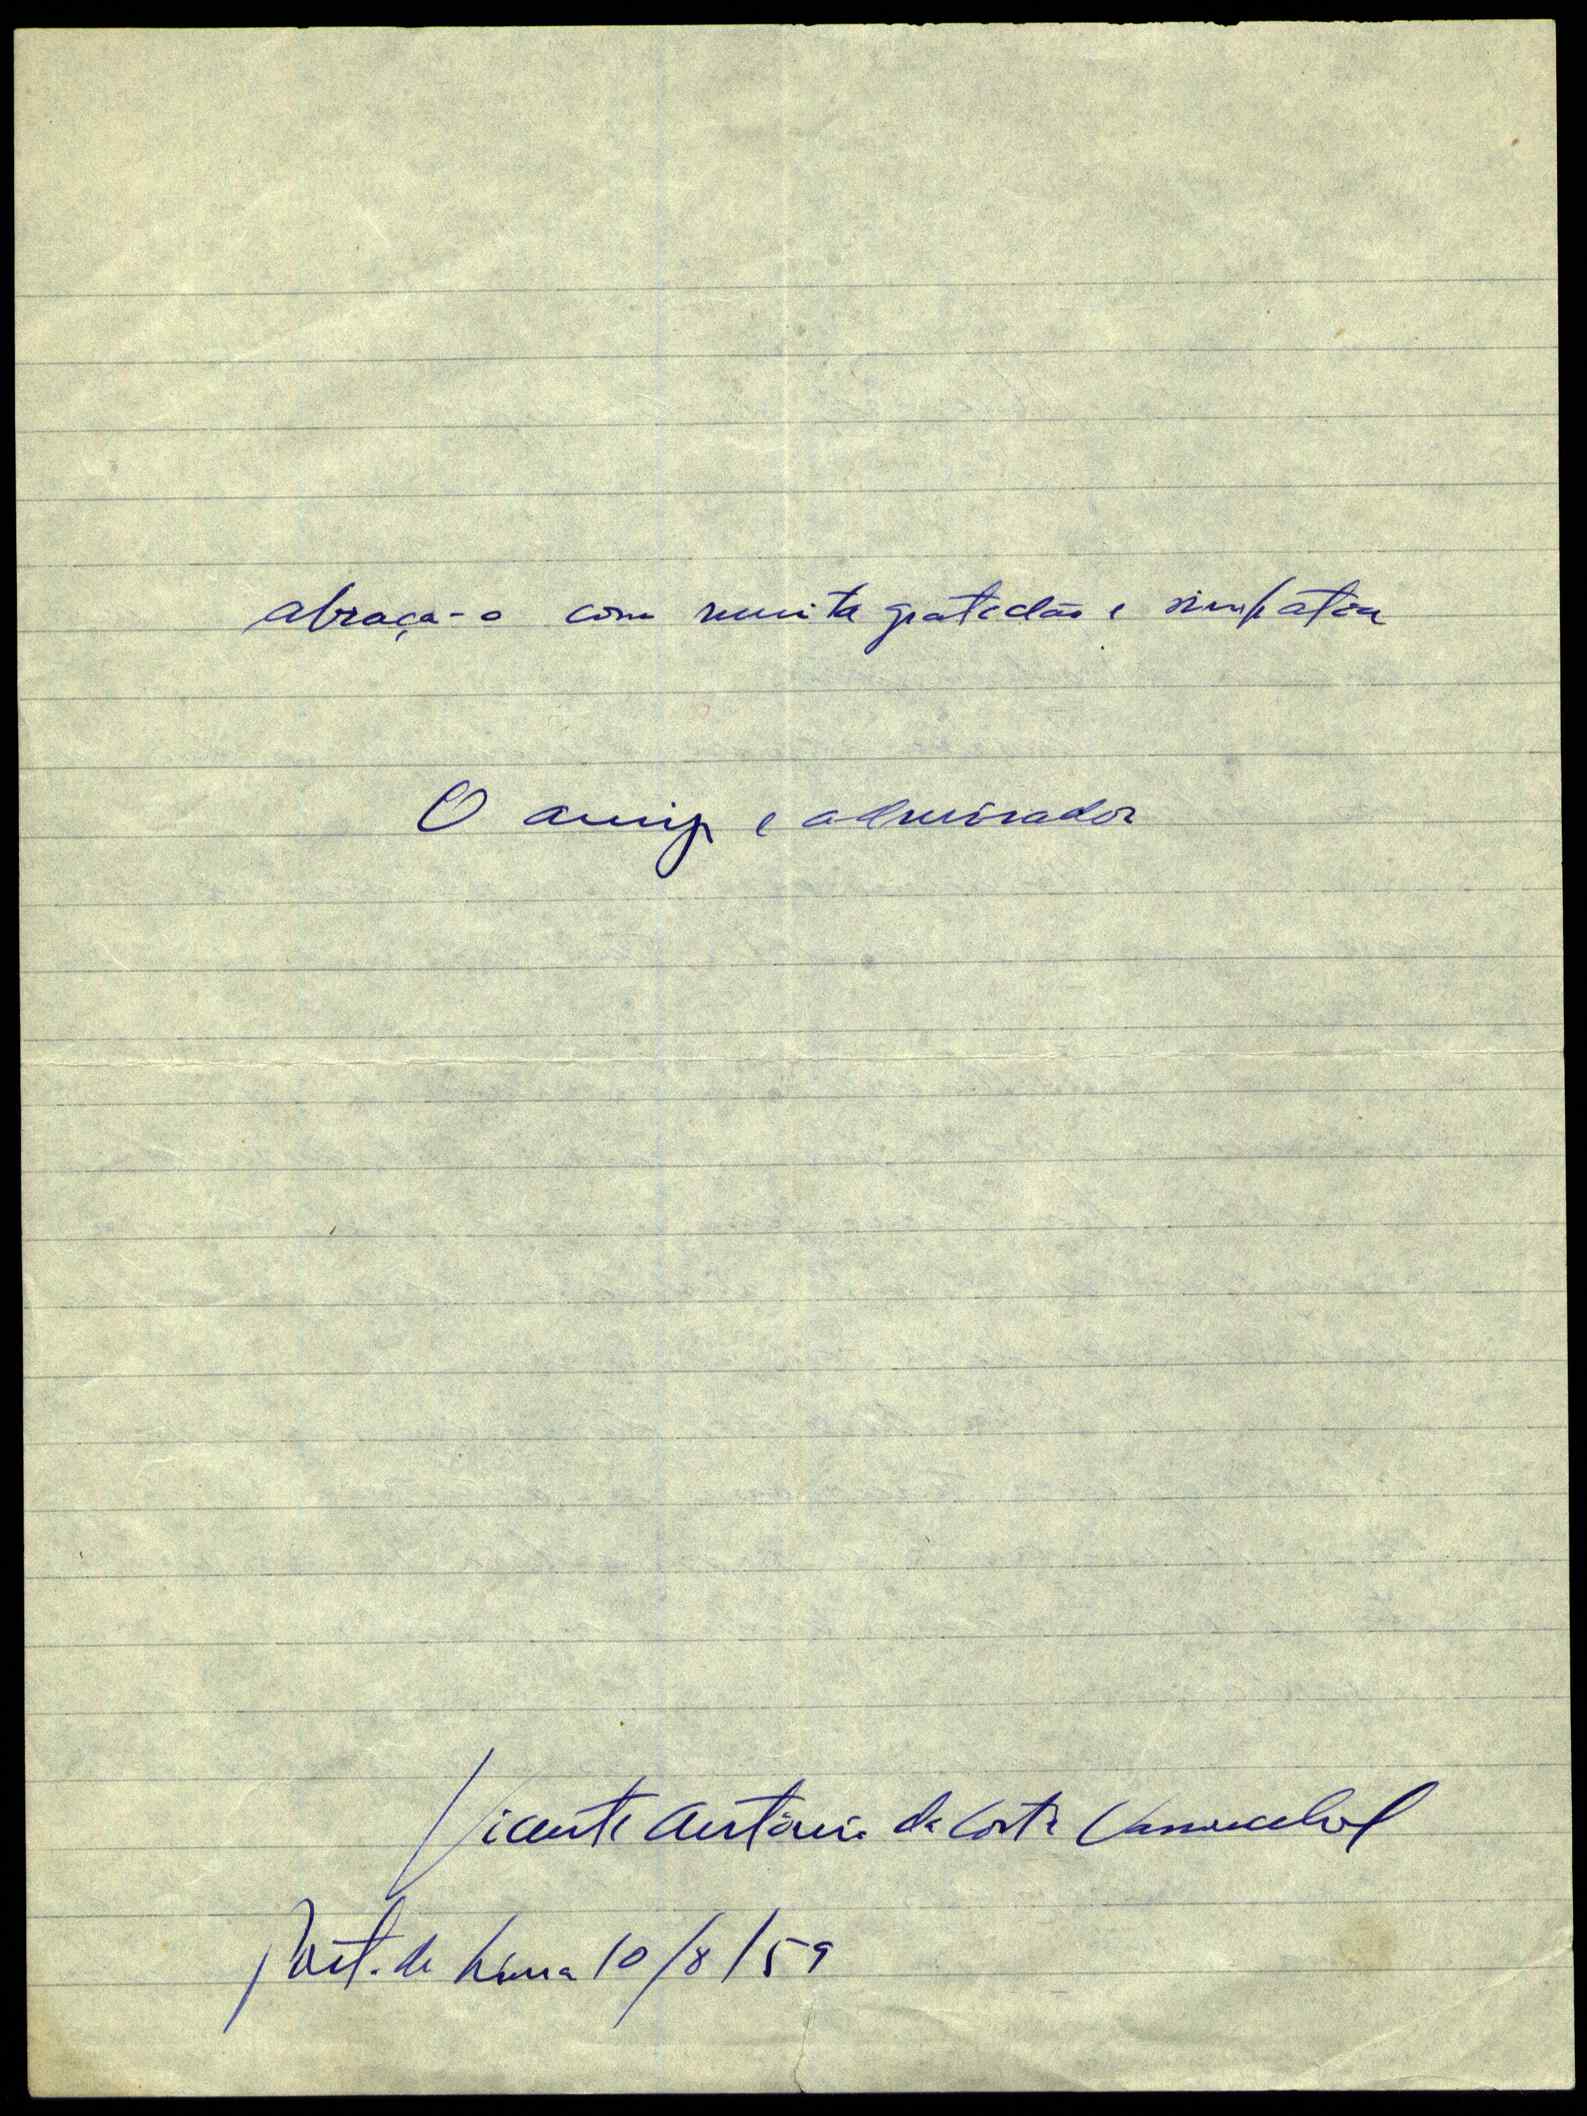 abraça-o com muita gratidão e simpatia
O amigo e admirador
Vicente António da Costa
Pont. de Lima 10/8/59